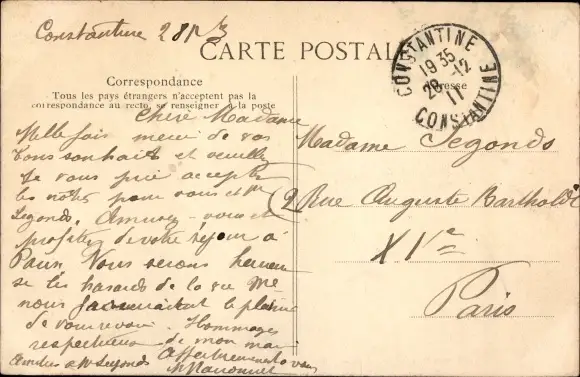 Constantine 28
CARTE POSTALE
Correspondance
Tous les pays étrangers n'acceptent pas la
correspondance au recto, se renseigner à la poste
Adresse
CONSTANTINE
19 35
28 -12
11
CONSTANTINE
Chère Madame
Mille fois merci de vos
bons souhaits et veuillez
je vous prie accepter
les nôtres pour vous et Mr
Segonds. Amusez-vous et
profitez de votre séjour à
Paris. Nous serons heureux
si les hasards de la vie
nous le plaisir
de vous revoir. Hommages
respectueux de mon mari
Amitiés a Mr Segonds Affectueusement a vous
Madame Segonds
2 Rue Auguste Bartholdi
XVe
Paris